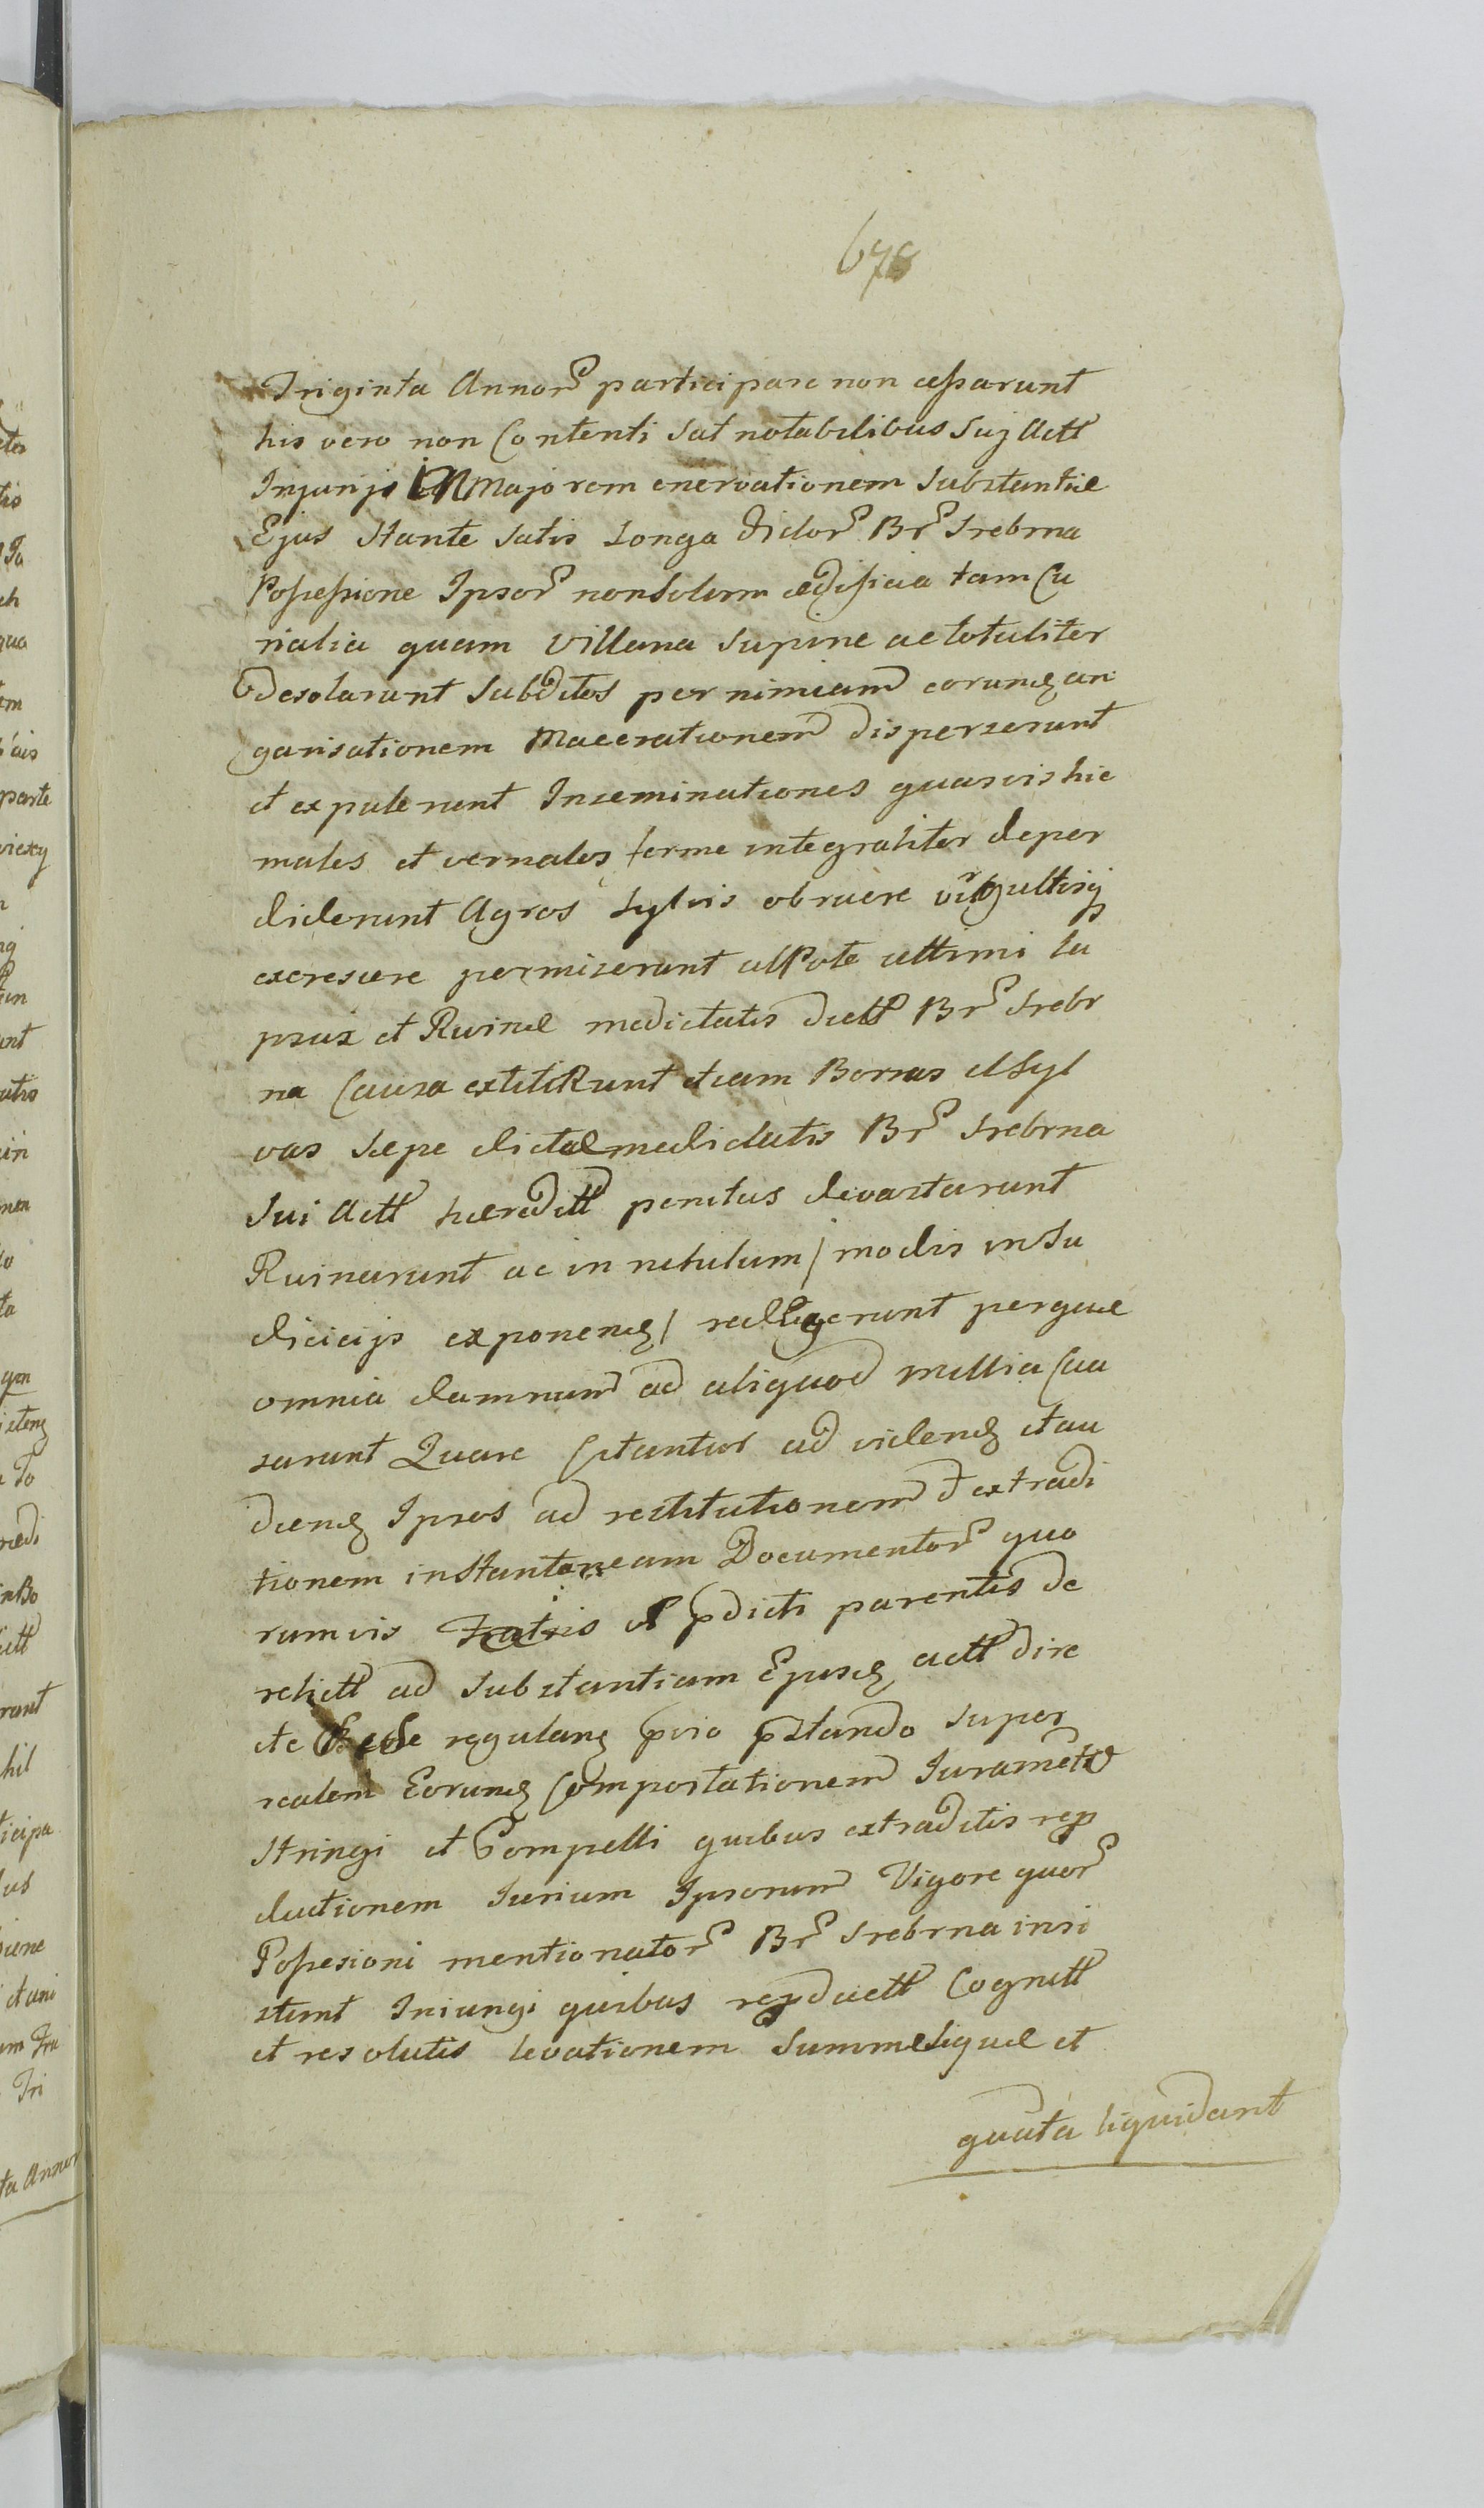 678
Triginta Annor participare non cessarunt
his vero non Contenti sat notabilibus suj Actt
Injurijs in Majorem enervationem Substantiæ
Ejus Stante satis longa dictor Br Srebrna
Possessione Ipsor non solum ædificia tam Cu
rialia quam Villana supine ac totaliter
desolarunt subditos per nimiam earumq an
garisationem Macerationem disperserunt
et expulerunt Inseminationes quasvis hie
males et vernales ferme integraliter deper
diderunt Agros sylvis obruere virgultisq
excrescere permiserunt utpote ultimi la
psus et Ruinæ medietatis dictt Br Srebr
na Causa extitRunt etiam Borras et Syl
vas sæpe dictæ medietatis Br Srebrna
sui Actt hæreditt penitus devastarunt
Ruinarunt ac in nihilum / modis in Ju
dicijs exponend / redegerunt perque
omnia damnum ad aliquod millia Cau
sarunt Quare Citantur ad videnq et au
diend Ipsos ad restitutionem et extradi
tionem instantaneam Documentor quo
rumvis Fratris et pdicti parentis de
relictt ad Substantiam Ejusq actt dire
cte regulanq pvio pstando super
realem Eorunq Comportationem Juramento
stringi et Compelli quibus extraditis rep
ductionem Jurium Ipsorum Vigore quor
Possesioni mentionator Br Srebrna insi
stunt Iniungi quibus repductt Cognitt
et resolutis levationem Summæ siquæ et
quata liquidant